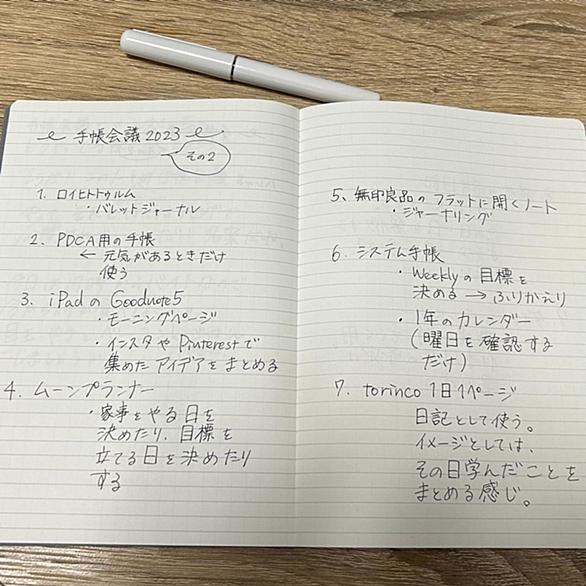 手帳会議2023
その2
1. ロイヒトトゥルム
・バレットジャーナル
2. PDCA用の手帳
← 元気があるときだけ
使う
3. iPadのGoodnote5
・モーニングページ
・インスタやPinterestで
集めたアイデアをまとめる
4. ムーンプランナー
・家事をやる日を
決めたり、目標を
立てる日を決めたり
する
5、無印良品のフラットに開くノート
・ジャーナリング
6. システム手帳
・Weeklyの目標を
決める→ふりかえり
・1年のカレンダー
(曜日を確認する
だけ)
7. torinco 1日1ページ
日記として使う。
イメージとしては、
その日学んだことを
まとめる感じ。